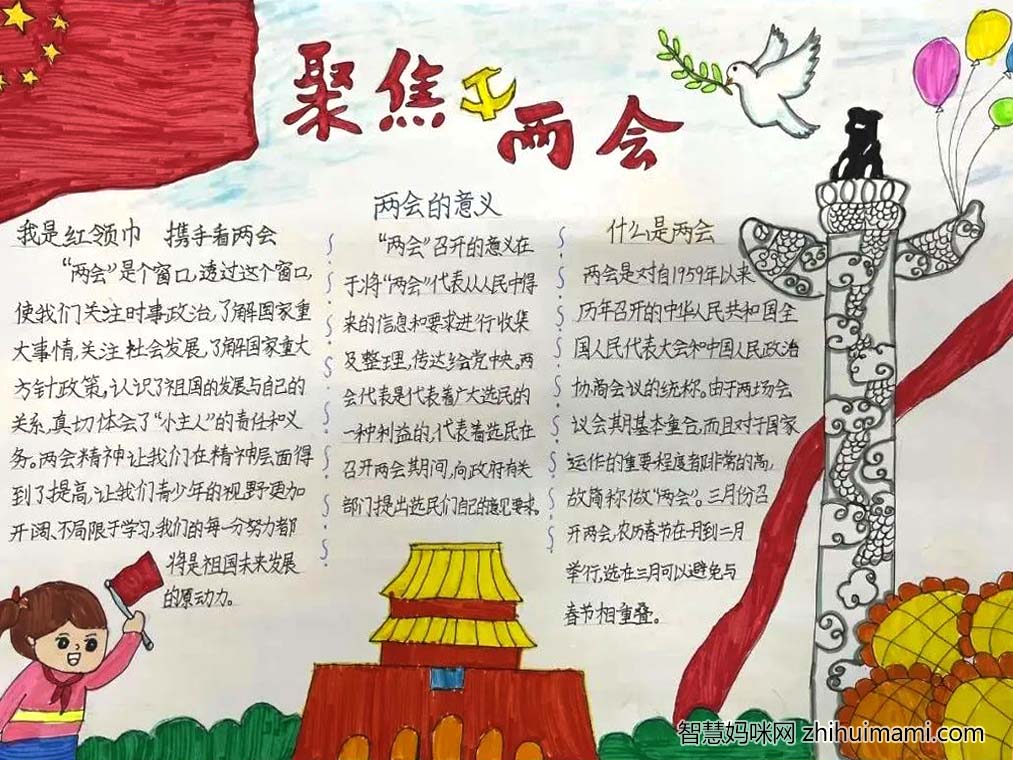 聚焦两会
我是红领巾 携手看两会
“两会”是个窗口,透过这个窗口,
使我们关注时事政治,了解国家重
大事情,关注社会发展,了解国家重大
方针政策,认识了祖国的发展与自己的
关系,真切体会了“小主人”的责任和义
务。两会精神让我们在精神层面得
到了提高,让我们青少年的视野更加
开阔、不局限于学习,我们的每一分努力都
将是祖国未来发展
的原动力。
两会的意义
“两会”召开的意义在
于:将“两会”代表从人民中得
来的信息和要求进行收集
及整理,传达给党中央。两
会代表是代表着广大选民的
一种利益的,代表着选民在
召开两会期间,向政府有关
部门提出选民们自己的意见要求。
什么是两会
两会是对自1959年以来
历年召开的中华人民共和国全
国人民代表大会和中国人民政治
协商会议的统称。由于两场会
议会期基本重合,而且对于国家
运作的重要程度都非常的高,
故简称做“两会”。三月份召
开两会,农历春节在一月到二月
举行,选在三月可以避免与
春节相重叠。
智慧妈咪网 zhihuimami.com